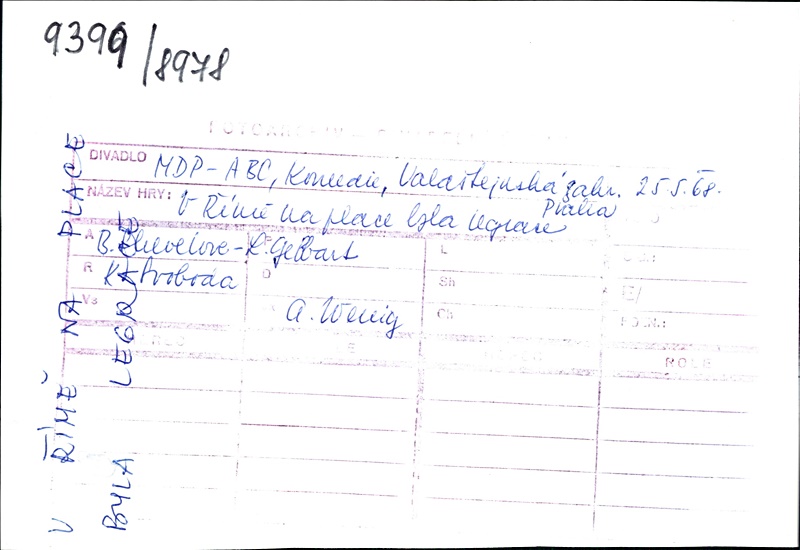 9399/8978
DIVADLO MDP-ABC, Komedie, Valdštejnská zahr. 25.5.68.
Praha
NÁZEV HRY: V Římě na place byla legrace
A B. Shevelove - L. Gelbart
R K. Svoboda
Vs A. Wenig
O
L
Sh
Ch
ROLE
V ŘÍMĚ NA PLACE
BYLA LEGRACE